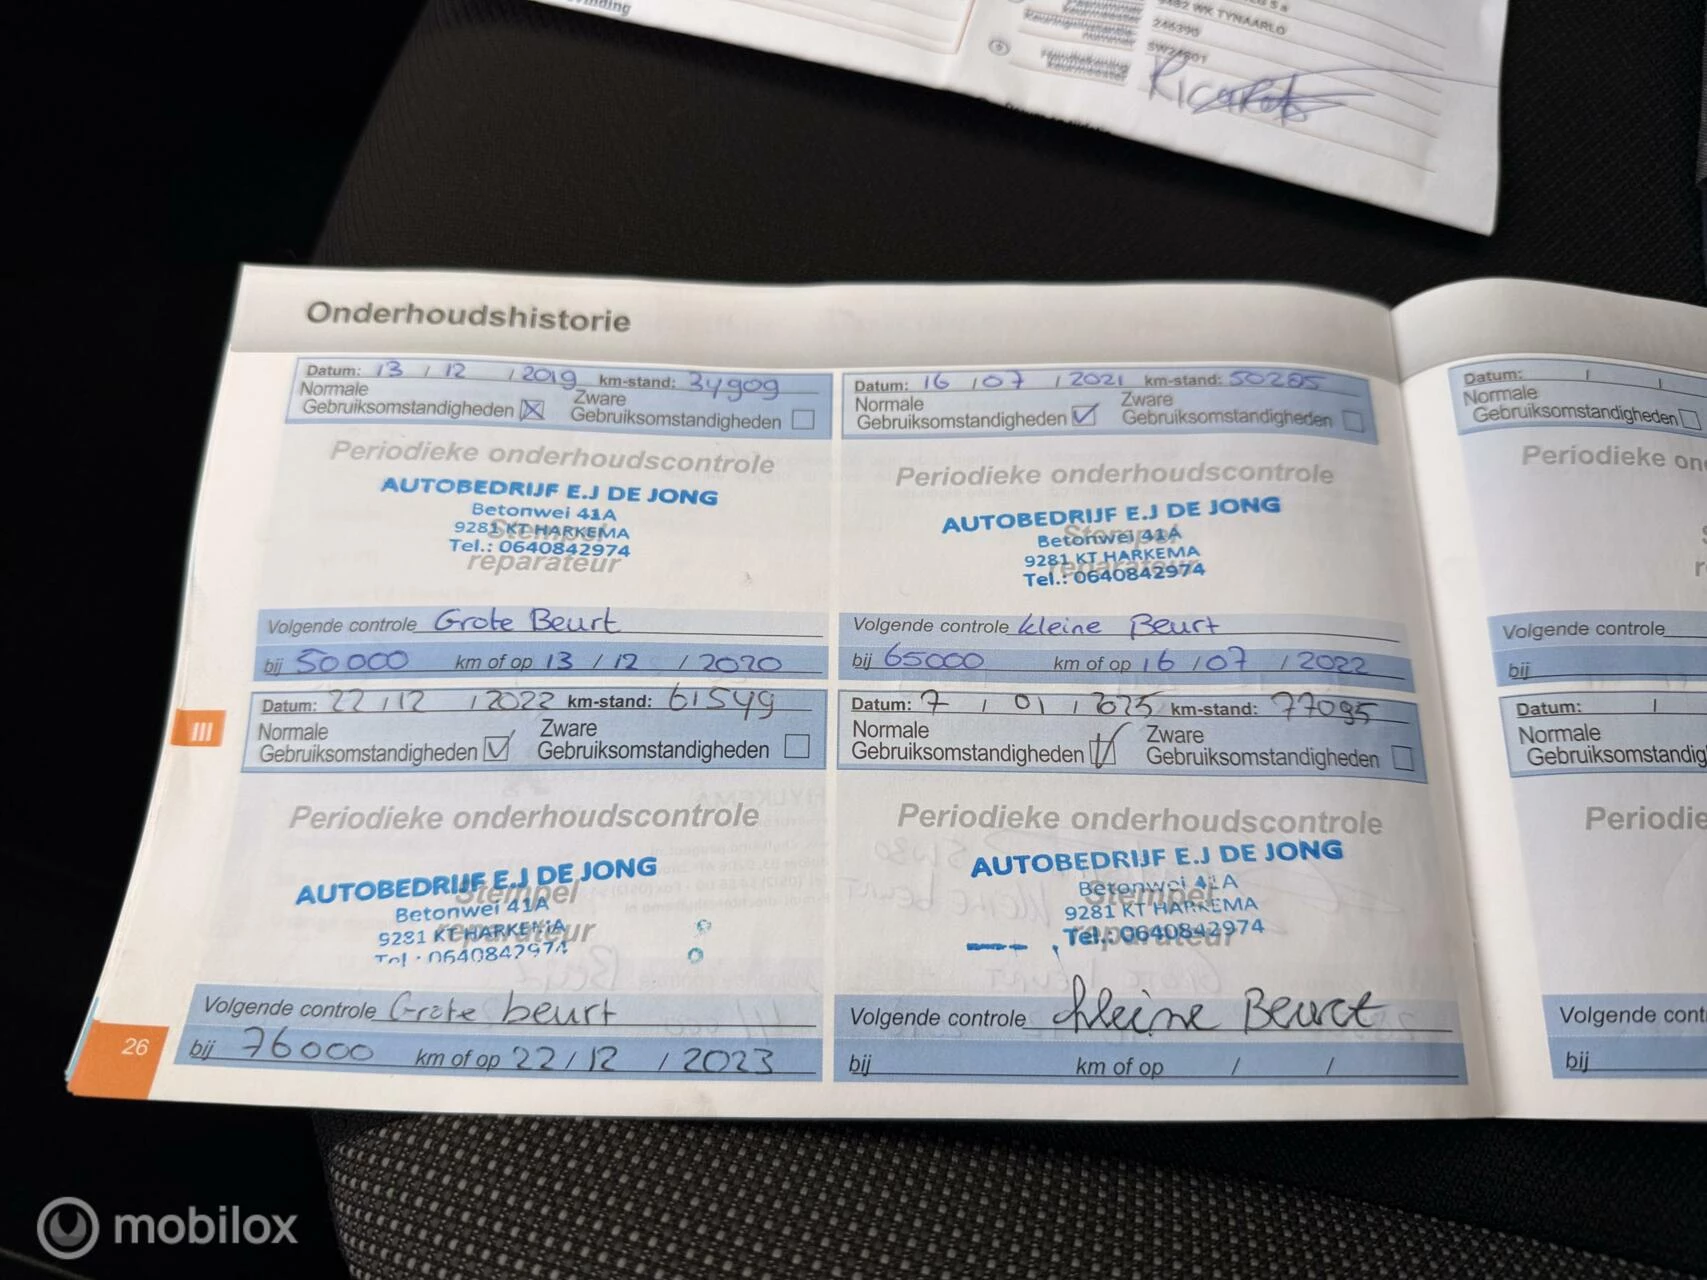 9482 WK TYNAARLO
246390
SW24601
Ricardo
Onderhoudshistorie
Datum: 13 / 12 / 2019 km-stand: 34909
Normale
Gebruiksomstandigheden
Zware
Gebruiksomstandigheden
Periodieke onderhoudscontrole
AUTOBEDRIJF E.J DE JONG
Betonwei 41A
9281 KT HARKEMA
Tel.: 0640842974
Stempel
reparateur
Volgende controle Grote Beurt
bij 50000 km of op 13 / 12 / 2020
Datum: 16 / 07 / 2021 km-stand: 50285
Normale
Gebruiksomstandigheden
Zware
Gebruiksomstandigheden
Periodieke onderhoudscontrole
AUTOBEDRIJF E.J DE JONG
Betonwei 41A
9281 KT HARKEMA
Tel.: 0640842974
Stempel
reparateur
Volgende controle kleine Beurt
bij 65000 km of op 16 / 07 / 2022
III
Datum: 22 / 12 / 2022 km-stand: 61549
Normale
Gebruiksomstandigheden
Zware
Gebruiksomstandigheden
Periodieke onderhoudscontrole
AUTOBEDRIJF E.J DE JONG
Betonwei 41A
9281 KT HARKEMA
Tel.: 0640842974
Stempel
reparateur
Volgende controle Grote beurt
bij 76000 km of op 22 / 12 / 2023
26
Datum: 7 / 01 / km-stand: 77095
Normale
Gebruiksomstandigheden
Zware
Gebruiksomstandigheden
Periodieke onderhoudscontrole
AUTOBEDRIJF E.J DE JONG
Betonwei 41A
9281 KT HARKEMA
Tel.: 0640842974
Stempel
reparateur
Volgende controle kleine Beurt
bij km of op / /
Datum: / /
Normale
Gebruiksomstandigheden
Periodieke
Volgende controle
bij
Datum: /
Normale
Volgende
bij
mobilox